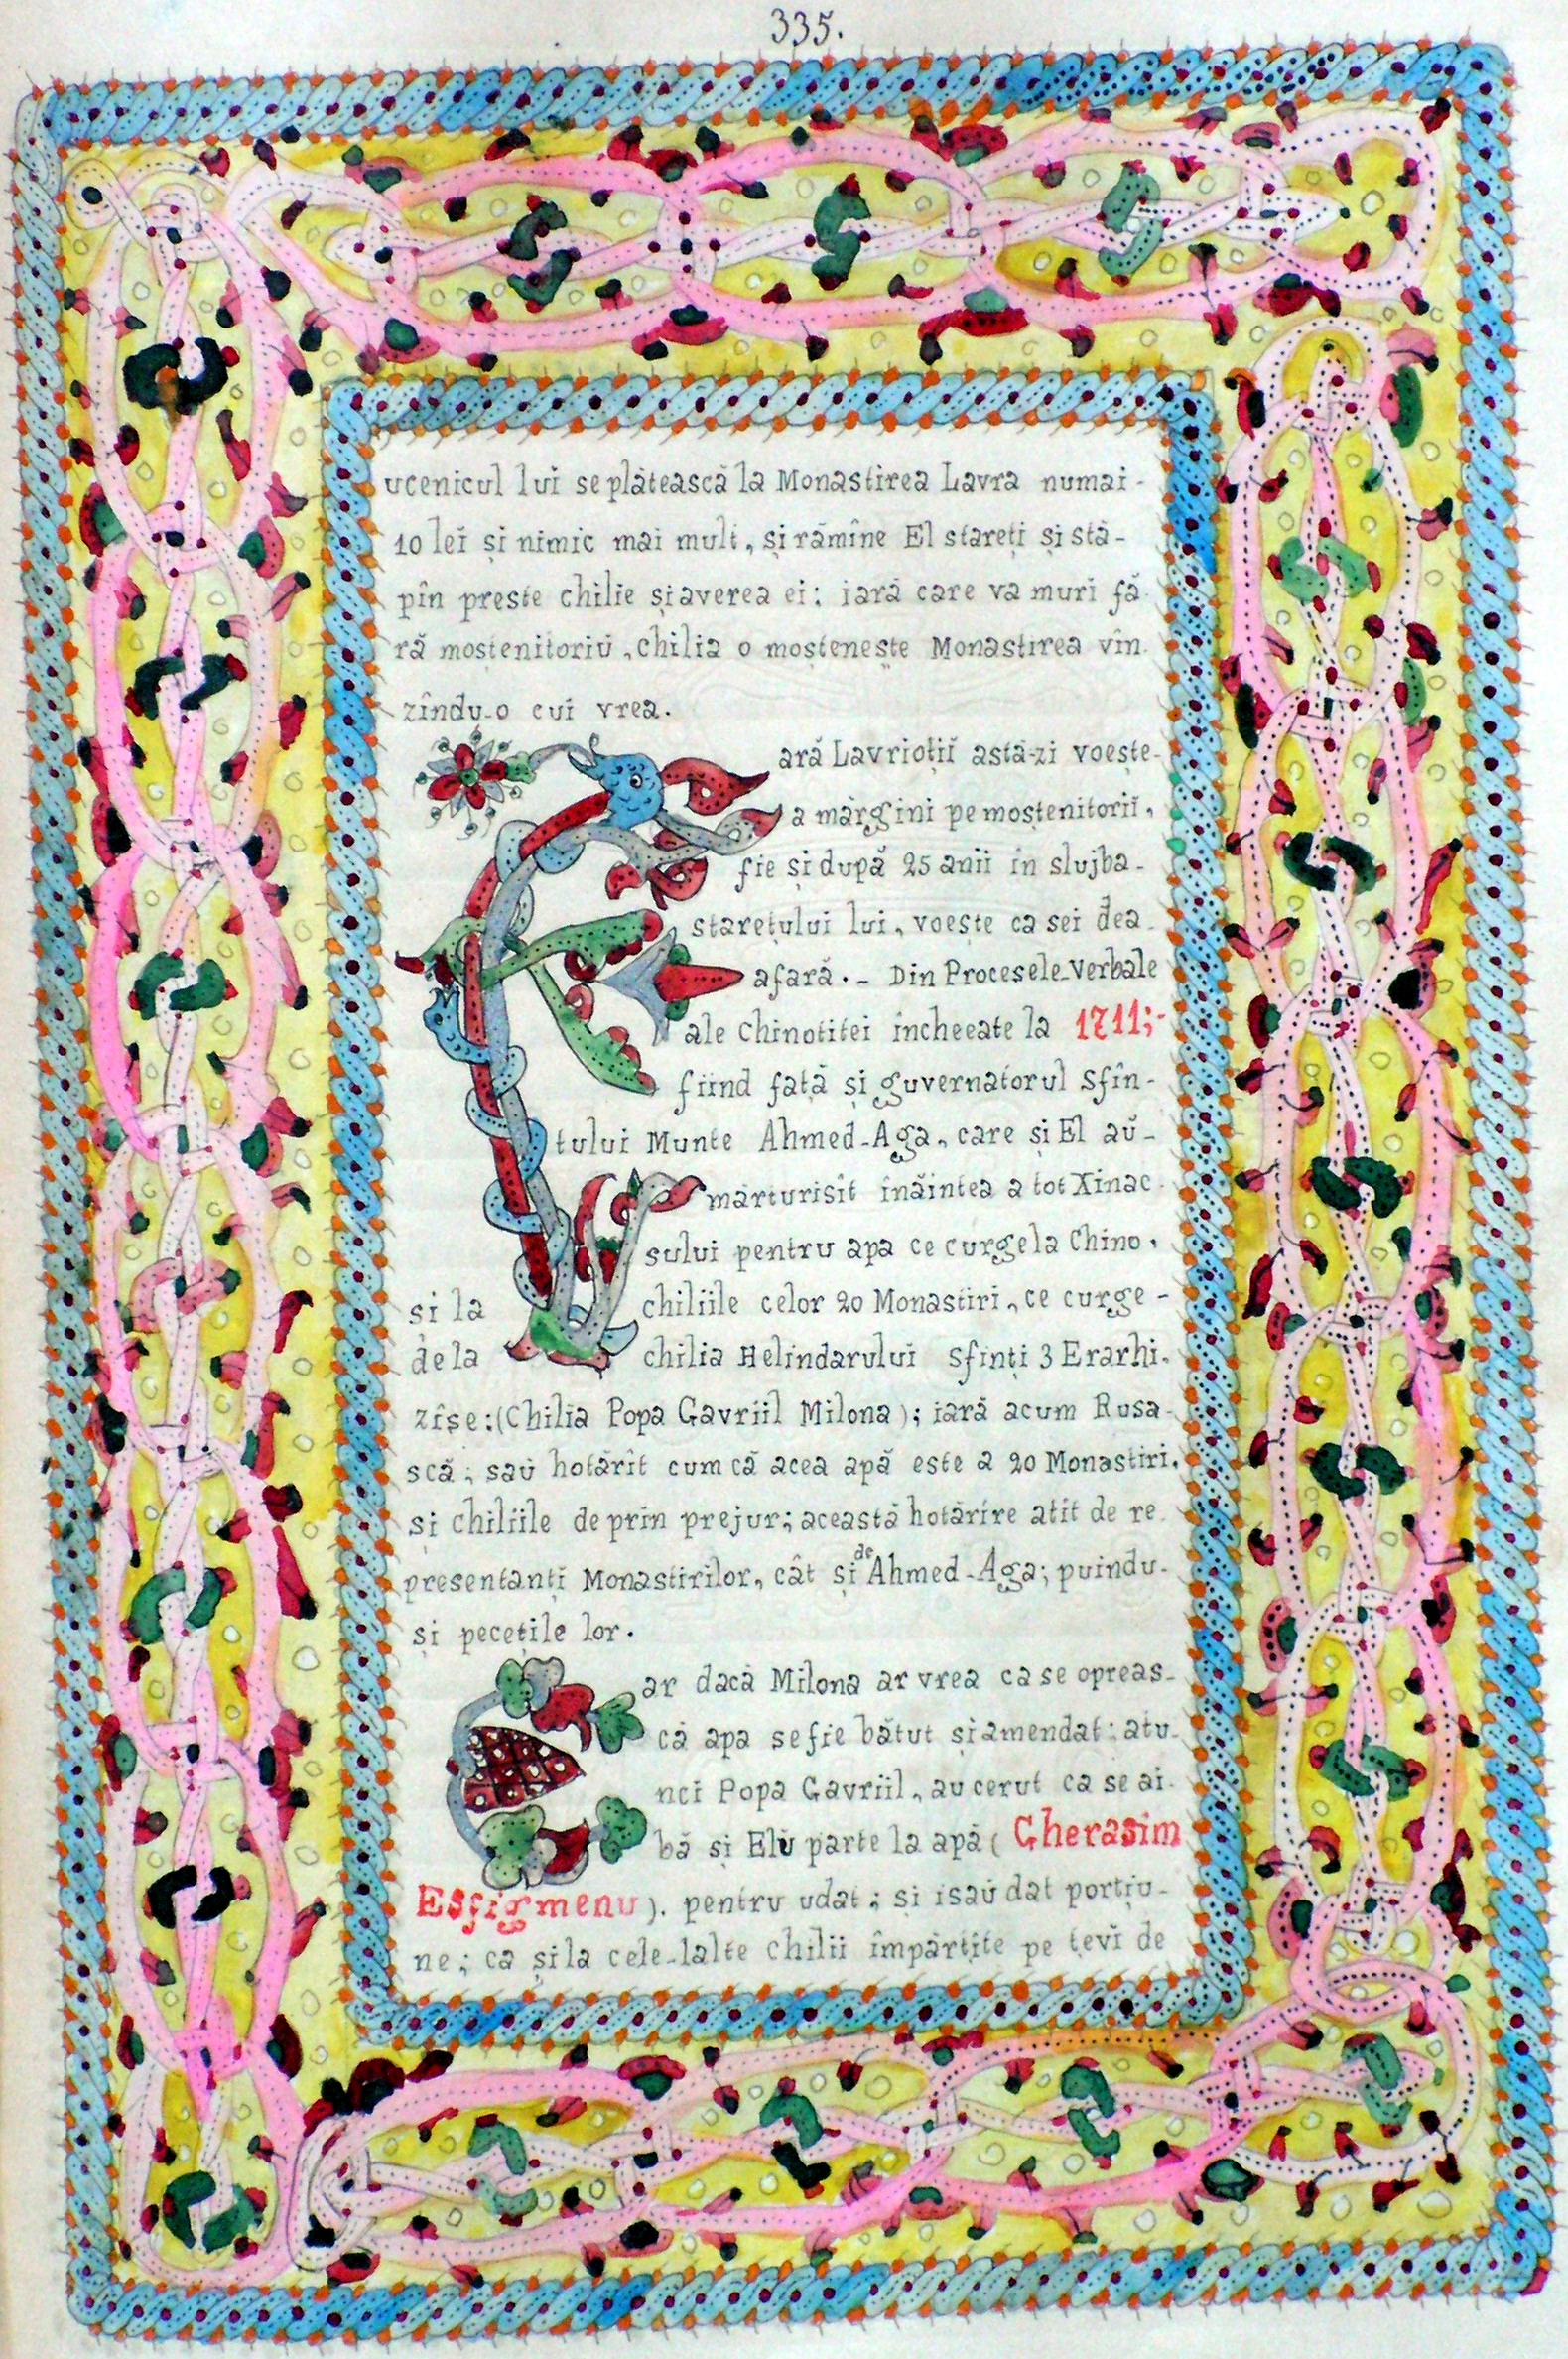 335.
ucenicul lui se plătească la Monastirea Lavra numai-
10 leĭ și nimic mai mult, și rămîne El stareți și stă-
pîn preste chilie și averea ei; iară care va muri fă-
ră moștenitoriŭ, chilia o moștenește Monastirea vîn-
zîndu-o cui vrea.
ară Lavrioții astă-zi voește-
a mărgini pe moștenitoriĭ,
fie și după 25 anii în slujba-
starețului lui, voește ca sei dea-
afară.- Din Procesele-verbale
ale Chinotitei încheeate la 1711;-
fiind față și guvernatorul Sfîn-
tului Munte Ahmed-Aga, care și El aŭ-
mărturisit înăintea a tot Xinac-
sului pentru apa ce curge la Chino,
și la chiliile celor 20 Monastiri, ce curge-
de la chilia Helindarului Sfinți 3 Erarhi,
zîse:(Chilia Popa Gavriil Milona); iară acum Rusa-
scă; saŭ hotărît cum că acea apă este a 20 Monastiri,
și chiliile de prin prejur; această hotărîre atît de re-
presentanți Monastirilor, cât și de Ahmed-Aga; puindu-
și pecețile lor.
ar dacă Milona ar vrea ca se opreas-
că apa se fie bătut și amendat; atu-
nci Popa Gavriil, au cerut ca se ai-
bă și Elŭ parte la apă ( Gherasim
Esfigmenu). pentru udat; și isaŭ dat porțiu-
ne; ca și la cele-lalte chilii împărțite pe țevi de